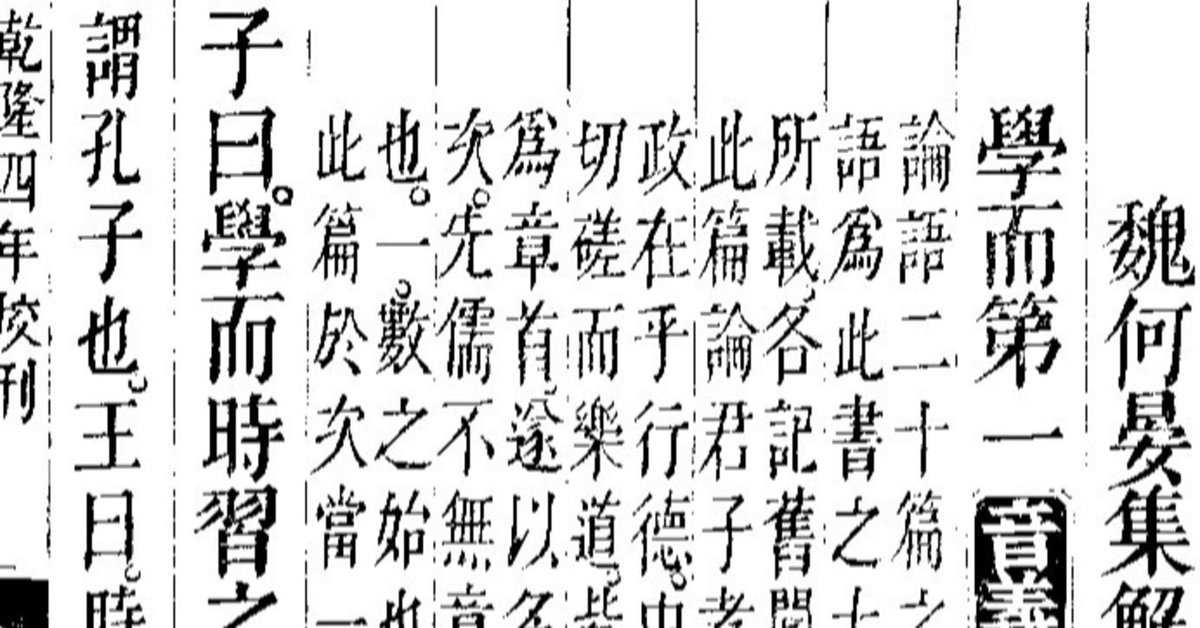 魏何晏集解
學而第一
論語二十篇之
語爲此書之大
所載各記舊聞
此篇論君子孝
政在乎行德。由
切磋而樂道。皆
爲章首。遂以名
次。先儒不無意
也。一。數之始也
此篇於次當一
子曰。學而時習之
謂孔子也。王曰。時
乾隆四年校刊